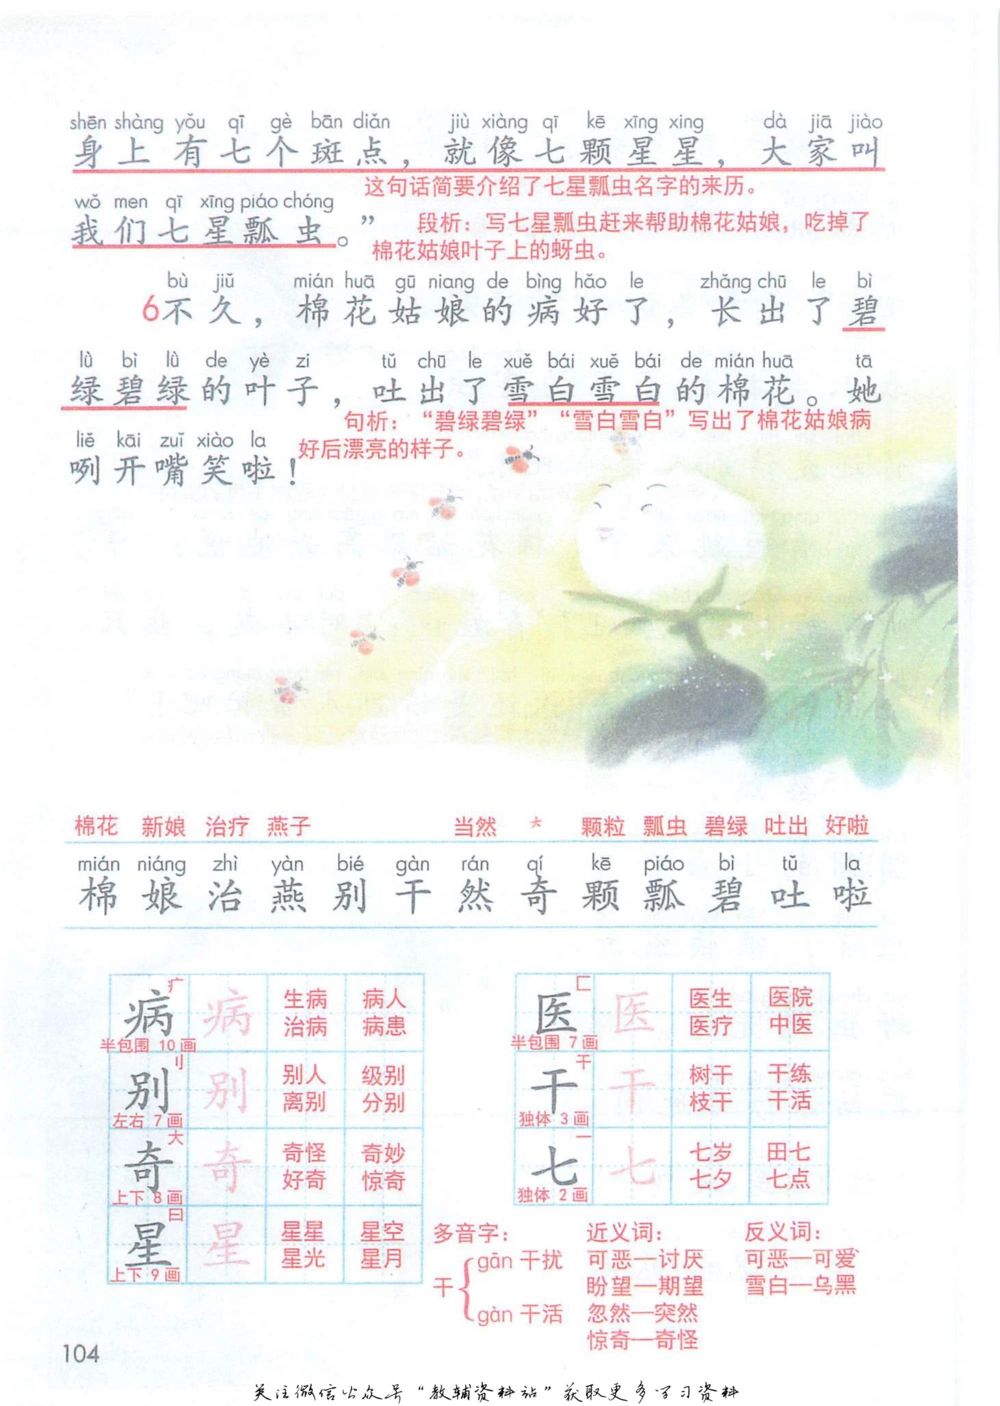 shēn shàng yǒu qī gè bān diǎn jiù xiàng qī kē xīng xing dà jiā jiào
身上有七个斑点，就像七颗星星，大家叫
这句话简要介绍了七星瓢虫名字的来历。
wǒ men qī xīng piáo chóng
我们七星瓢虫。”
段析：写七星瓢虫赶来帮助棉花姑娘，吃掉了
棉花姑娘叶子上的蚜虫。
bù jiǔ mián huā gū niang de bìng hǎo le zhǎng chū le bì
6不久，棉花姑娘的病好了，长出了碧
lǜ bì lǜ de yè zi tǔ chū le xuě bái xuě bái de mián huā tā
绿碧绿的叶子，吐出了雪白雪白的棉花。她
句析：“碧绿碧绿”“雪白雪白”写出了棉花姑娘病
好后漂亮的样子。
liě kāi zuǐ xiào la
咧开嘴笑啦！
棉花 新娘 治疗 燕子 当然 * 颗粒 瓢虫 碧绿 吐出 好啦
mián niáng zhì yàn bié gàn rán qí kē piáo bì tǔ la
棉 娘 治 燕 别 干 然 奇 颗 瓢 碧 吐 啦
疒
病 病 生病 病人
治病 病患
半包围 10画
刂
别 别 别人 级别
离别 分别
左右 7画
大
奇 奇 奇怪 奇妙
好奇 惊奇
上下 8画
日
星 星 星星 星空
星光 星月
上下 9画
匚
医 医 医生 医院
医疗 中医
半包围 7画
干
干 干 树干 干练
枝干 干活
独体 3画
一
七 七 七岁 田七
七夕 七点
独体 2画
多音字：
干
gān 干扰
gàn 干活
近义词：
可恶—讨厌
盼望—期望
忽然—突然
惊奇—奇怪
反义词：
可恶—可爱
雪白—乌黑
104
关注微信公众号“教辅资料站”获取更多学习资料